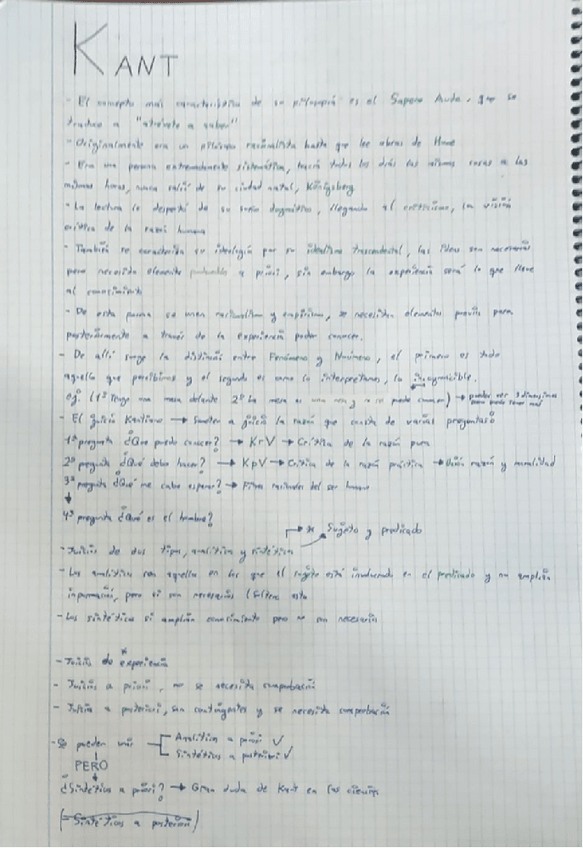 KANT
- El concepto más característico de su philosophía es el Sapere Aude, que se
traduce a "atrévete a saber"
- Originalmente era un filósofo racionalista hasta que lee obras de Hume
- Era una persona extremadamente sistemática, hacía todos los días las mismas cosas a las
mismas horas, nunca salió de su ciudad natal, Königsberg
- La lectura le despertó de su sueño dogmático, llegando al criticismo, la visión
crítica de la razón humana
- También se caracteriza su ideología por su idealismo trascendental, las ideas son necesarias
pero necesita elementos a priori, sin embargo la experiencia será lo que lleve
al conocimiento
- De esta forma se unen racionalismo y empirismo, se necesitan elementos previos para
posteriormente a través de la experiencia poder conocer.
- De allí surge la distinción entre Fenómeno y Noúmeno, el primero es todo
aquello que percibimos y el segundo es como lo interpretamos, lo incognoscible.
ej. (1º Tengo una mesa delante 2º La mesa es una mesa y no se puede conocer) → 3 dimensiones
- El Juicio Kantiano → Someter a juicio la razón que consta de varias preguntas
1ª pregunta ¿Que puedo conocer? → KrV → Crítica de la razón pura
2ª pregunta ¿Qué debo hacer? → KpV → Crítica de la razón práctica → razón y moralidad
3ª pregunta ¿Qué me cabe esperar? → Fines racionales del ser humano
↓
4ª pregunta ¿Qué es el hombre?
* Sujeto y predicado
- Juicios de dos tipos, analíticos y sintéticos
- Los analíticos son aquellos en los que el sujeto está involucrado en el predicado y no amplían
información, pero sí son necesarios (Soltero
- Los sintéticos si amplían conocimiento pero no son necesarios
- Juicios de experiencia
- Juicios a priori, no se necesita comprobación
- Juicios a posteriori, son contingentes y se necesita comprobación
- Se pueden unir Analíticos a priori ✓
Sintéticos a posteriori ✓
PERO
↓
¿Sintéticos a priori? → Gran duda de Kant en las ciencias
(Sintéticos a posteriori)